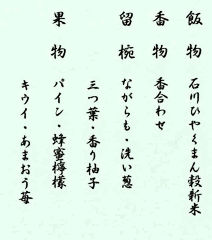 飯物 石川ひゃくまん穀新米
香物 香合わせ
留椀 ながらも・洗い葱
三つ葉・香り柚子
果物 パイン・蜂蜜檸檬
キウイ・あまおう苺